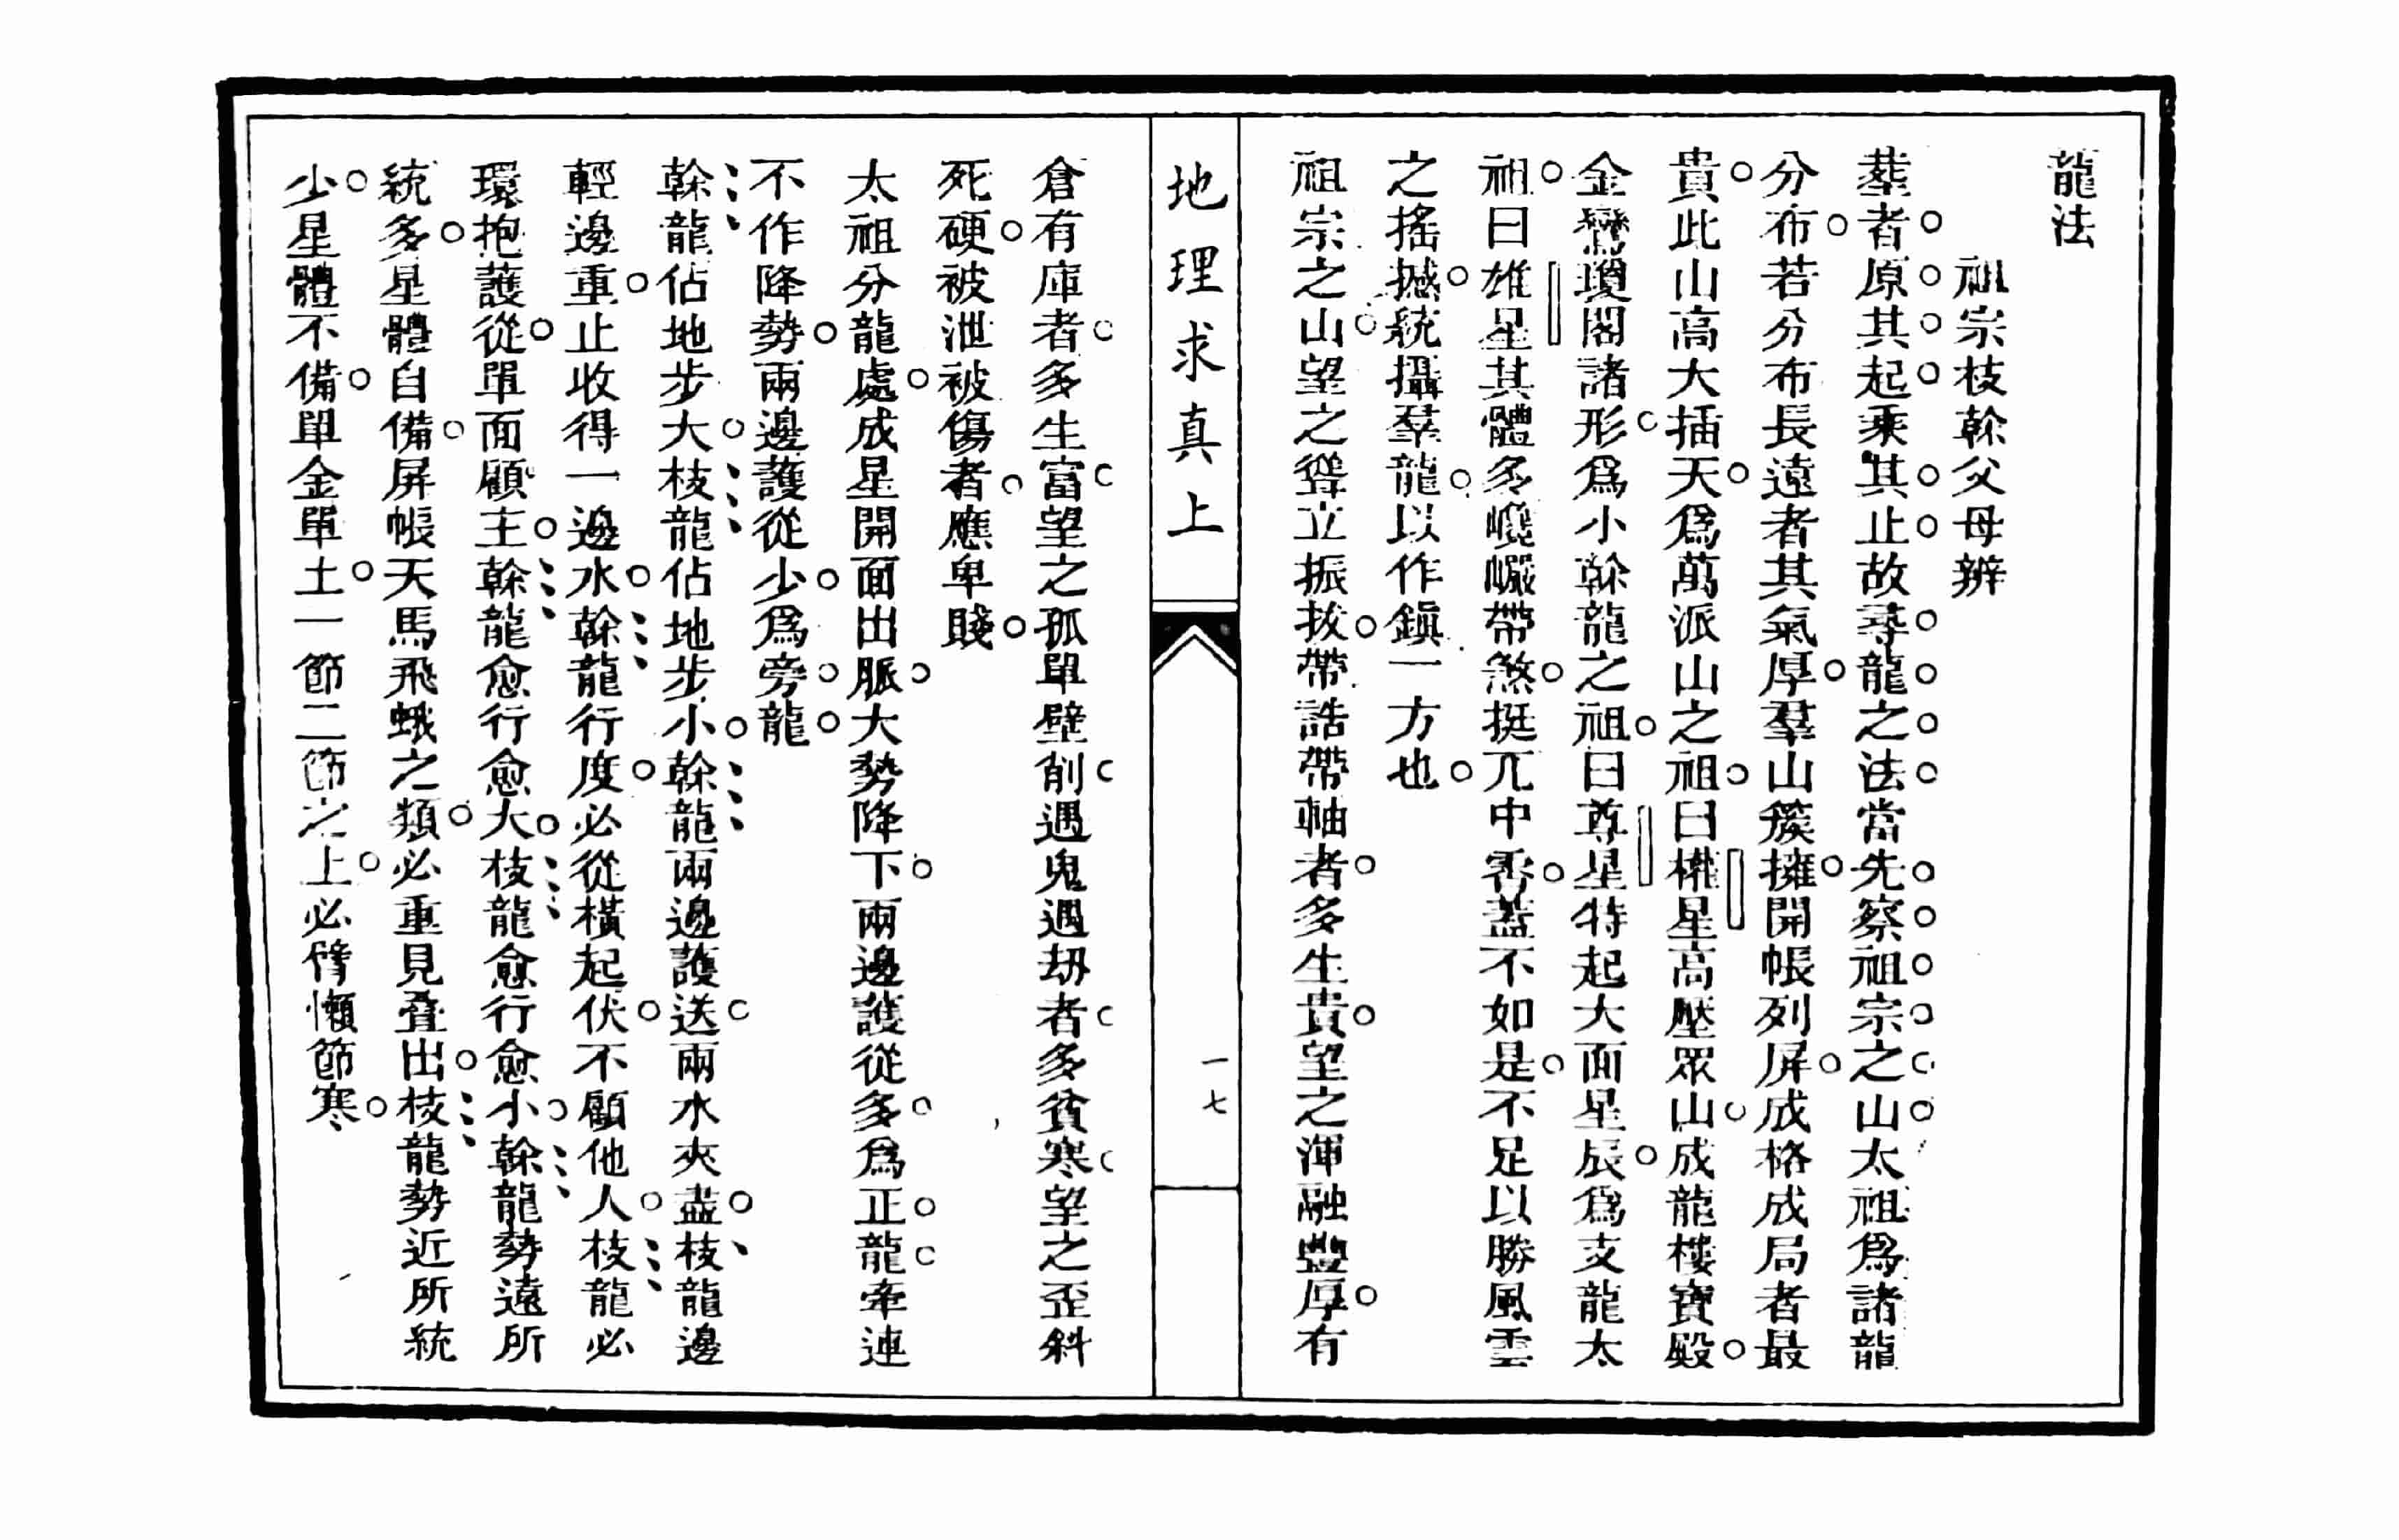 龍法
祖宗枝榦父母辨
葬者原其起乘其止故尋龍之法當先察祖宗之山太祖爲諸龍
分布若分布長遠者其氣厚羣山簇擁開帳列屏成格成局者最
貴此山高大插天爲萬派山之祖曰權星高壓眾山成龍樓寶殿
金鸞瓊閣諸形爲小榦龍之祖曰尊星特起大面星辰爲支龍太
祖曰雄星其體多巉巖帶煞挺兀中霄蓋不如是不足以勝風雲
之搖撼統攝羣龍以作鎭一方也
祖宗之山望之聳立振拔帶誥帶軸者多生貴望之渾融豐厚有
地理求真上
一七
倉有庫者多生富望之孤單壁削遇鬼遇刼者多貧寒望之歪斜
死硬被泄被傷者應卑賤
太祖分龍處成星開面出脈大勢降下兩邊護從多爲正龍牽連
不作降勢兩邊護從少爲旁龍
榦龍佔地步大枝龍佔地步小榦龍兩邊護送兩水夾盡枝龍邊
輕邊重止收得一邊水榦龍行度必從橫起伏不顧他人枝龍必
環抱護從單面顧主榦龍愈行愈大枝龍愈行愈小榦龍勢遠所
統多星體自備屏帳天馬飛蛾之類必重見疊出枝龍勢近所統
少星體不備單金單土一節二節之上必臂懶節寒